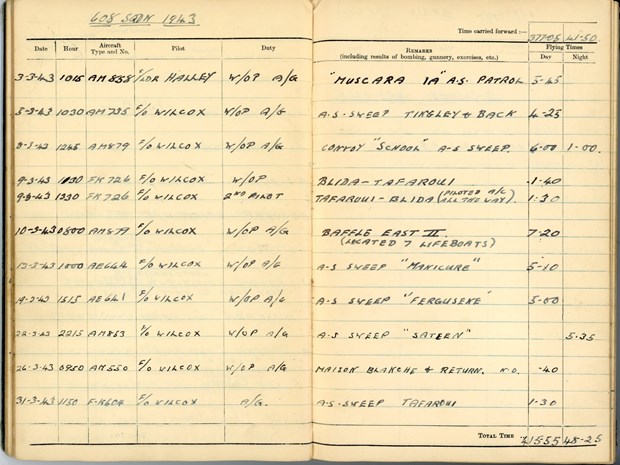 608 SQDN 1943
Time carried forward:— 377-05 41-50
Date Hour Aircraft Type and No. Pilot Duty REMARKS (including results of bombing, gunnery, exercises, etc.) Flying Times Day Night
3-3-43 1015 AM838 S/LDR HALLEY W/OP A/G "MUSCARA 1A" A.S. PATROL 5-45
5-3-43 1030 AM735 F/O WILCOX W/OP A/G A-S-SWEEP TINGLEY & BACK 4-25
8-3-43 1245 AM879 F/O WILCOX W/OP A/G CONVOY "SCHOOL" A-S SWEEP. 6-00 1-00.
9-3-43 1030 FK726 F/O WILCOX W/OP BLIDA-TAFAROUI -1-40
9-3-43 1330 FK726 F/O WILCOX 2ND PILOT TAFAROUI-BLIDA (PILOTED A/C ALL THE WAY). 1-30
10-3-43 0800 AM879 F/O WILCOX W/OP A/G BAFFLE EAST II. 7-20
(LOCATED 7 LIFEBOATS)
13-3-43 1000 AE644 F/O WILCOX W/OP A/G A-S SWEEP "MANICURE" 5-10
19-3-43 1515 AE641 F/O WILCOX W/OP A/G A-S SWEEP "FERGUSENE" 5-00
22-3-43 2215 AM853 F/O WILCOX W/OP A/G A-S SWEEP "SATEEN" 5-35
26-3-43 0950 AM550 F/O WILCOX W/OP A/G MAISON BLANCHE & RETURN. -40
31-3-43 1150 F-K604 F/O WILCOX A/G. A-S-SWEEP TAFAROUI 1-30
TOTAL TIME 415-55 48-25